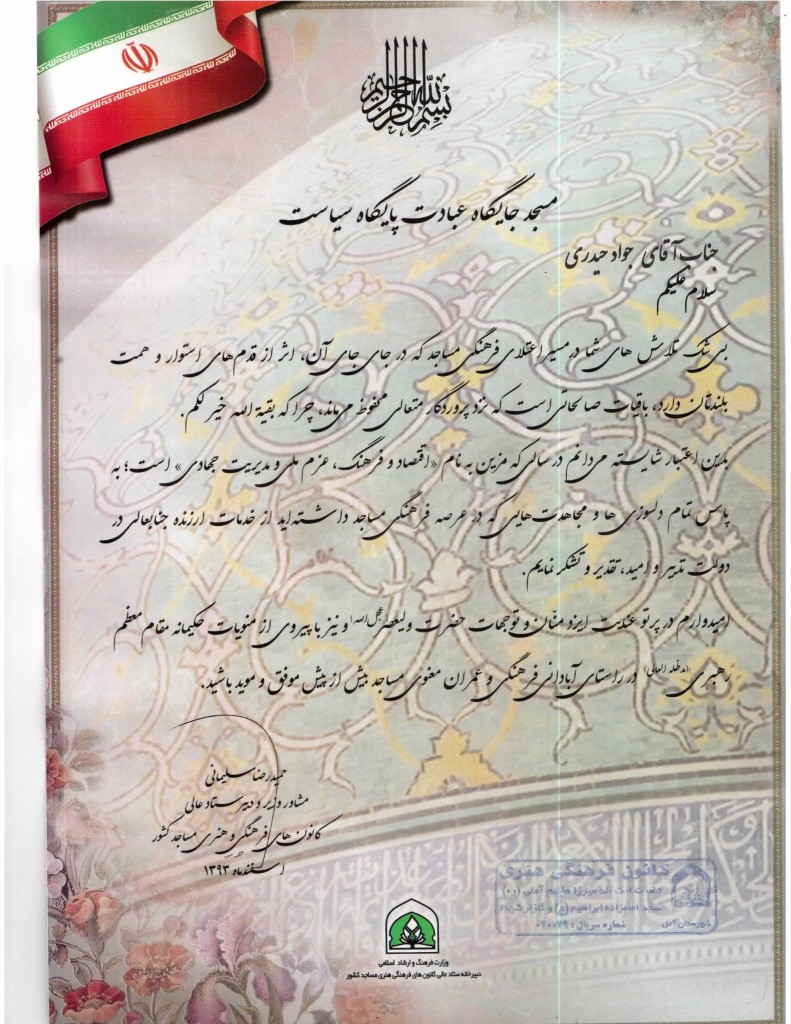 بسم الله الرحمن الرحیم
مسجد جایگاه عبادت پایگاه سیاست
جناب آقای جواد حیدری
سلام علیکم
بی شک تلارش های شما در مسیر اعتلای فرهنگی مساجد که در جای جای آن، اثر از قدم‌های استوار و همت
بلندتان دارد، باقیات صالحاتی است که نزد پروردگار متعالی محفوظ می‌ماند، چرا که بقیة الله خیر لکم.
بدین اعتبار شایسته می‌دانم در سالی که مزین به نام «اقتصاد و فرهنگ، عزم ملی و مدیریت جهادی» است؛ به
پاس تمام دلسوزی ها و مجاهدت‌هایی که در عرصه فرهنگی مساجد داشته‌اید از خدمات ارزنده جنابعالی در
دولت تدبیر و امید، تقدیر و تشکر نمایم.
امیدوارم در پرتو عنایت ایزد منّان و توجهات حضرت ولیعصر(عجل الله) و نیز با پیروی از منویات حکیمانه مقام معظم
رهبری (مدظله العالی) در راستای آبادانی فرهنگی و عمران معنوی مساجد بیش از پیش موفق و موید باشید.
حمیدرضا سلیمانی
مشاور وزیر و دبیر ستاد عالی
کانون های فرهنگی و هنری مساجد کشور
اسفندماه ۱۳۹۳
کانون فرهنگی هنری
حضرت آیت اله میرزا هاشم آملی (ره)
مسجد امامزاده ابراهیم (ع) و گلزار شهدا
شهرستان آمل شماره سریال : ۰۲۰۰۲۹
وزارت فرهنگ و ارشاد اسلامی
دبیرخانه ستاد عالی کانون های فرهنگی هنری مساجد کشور